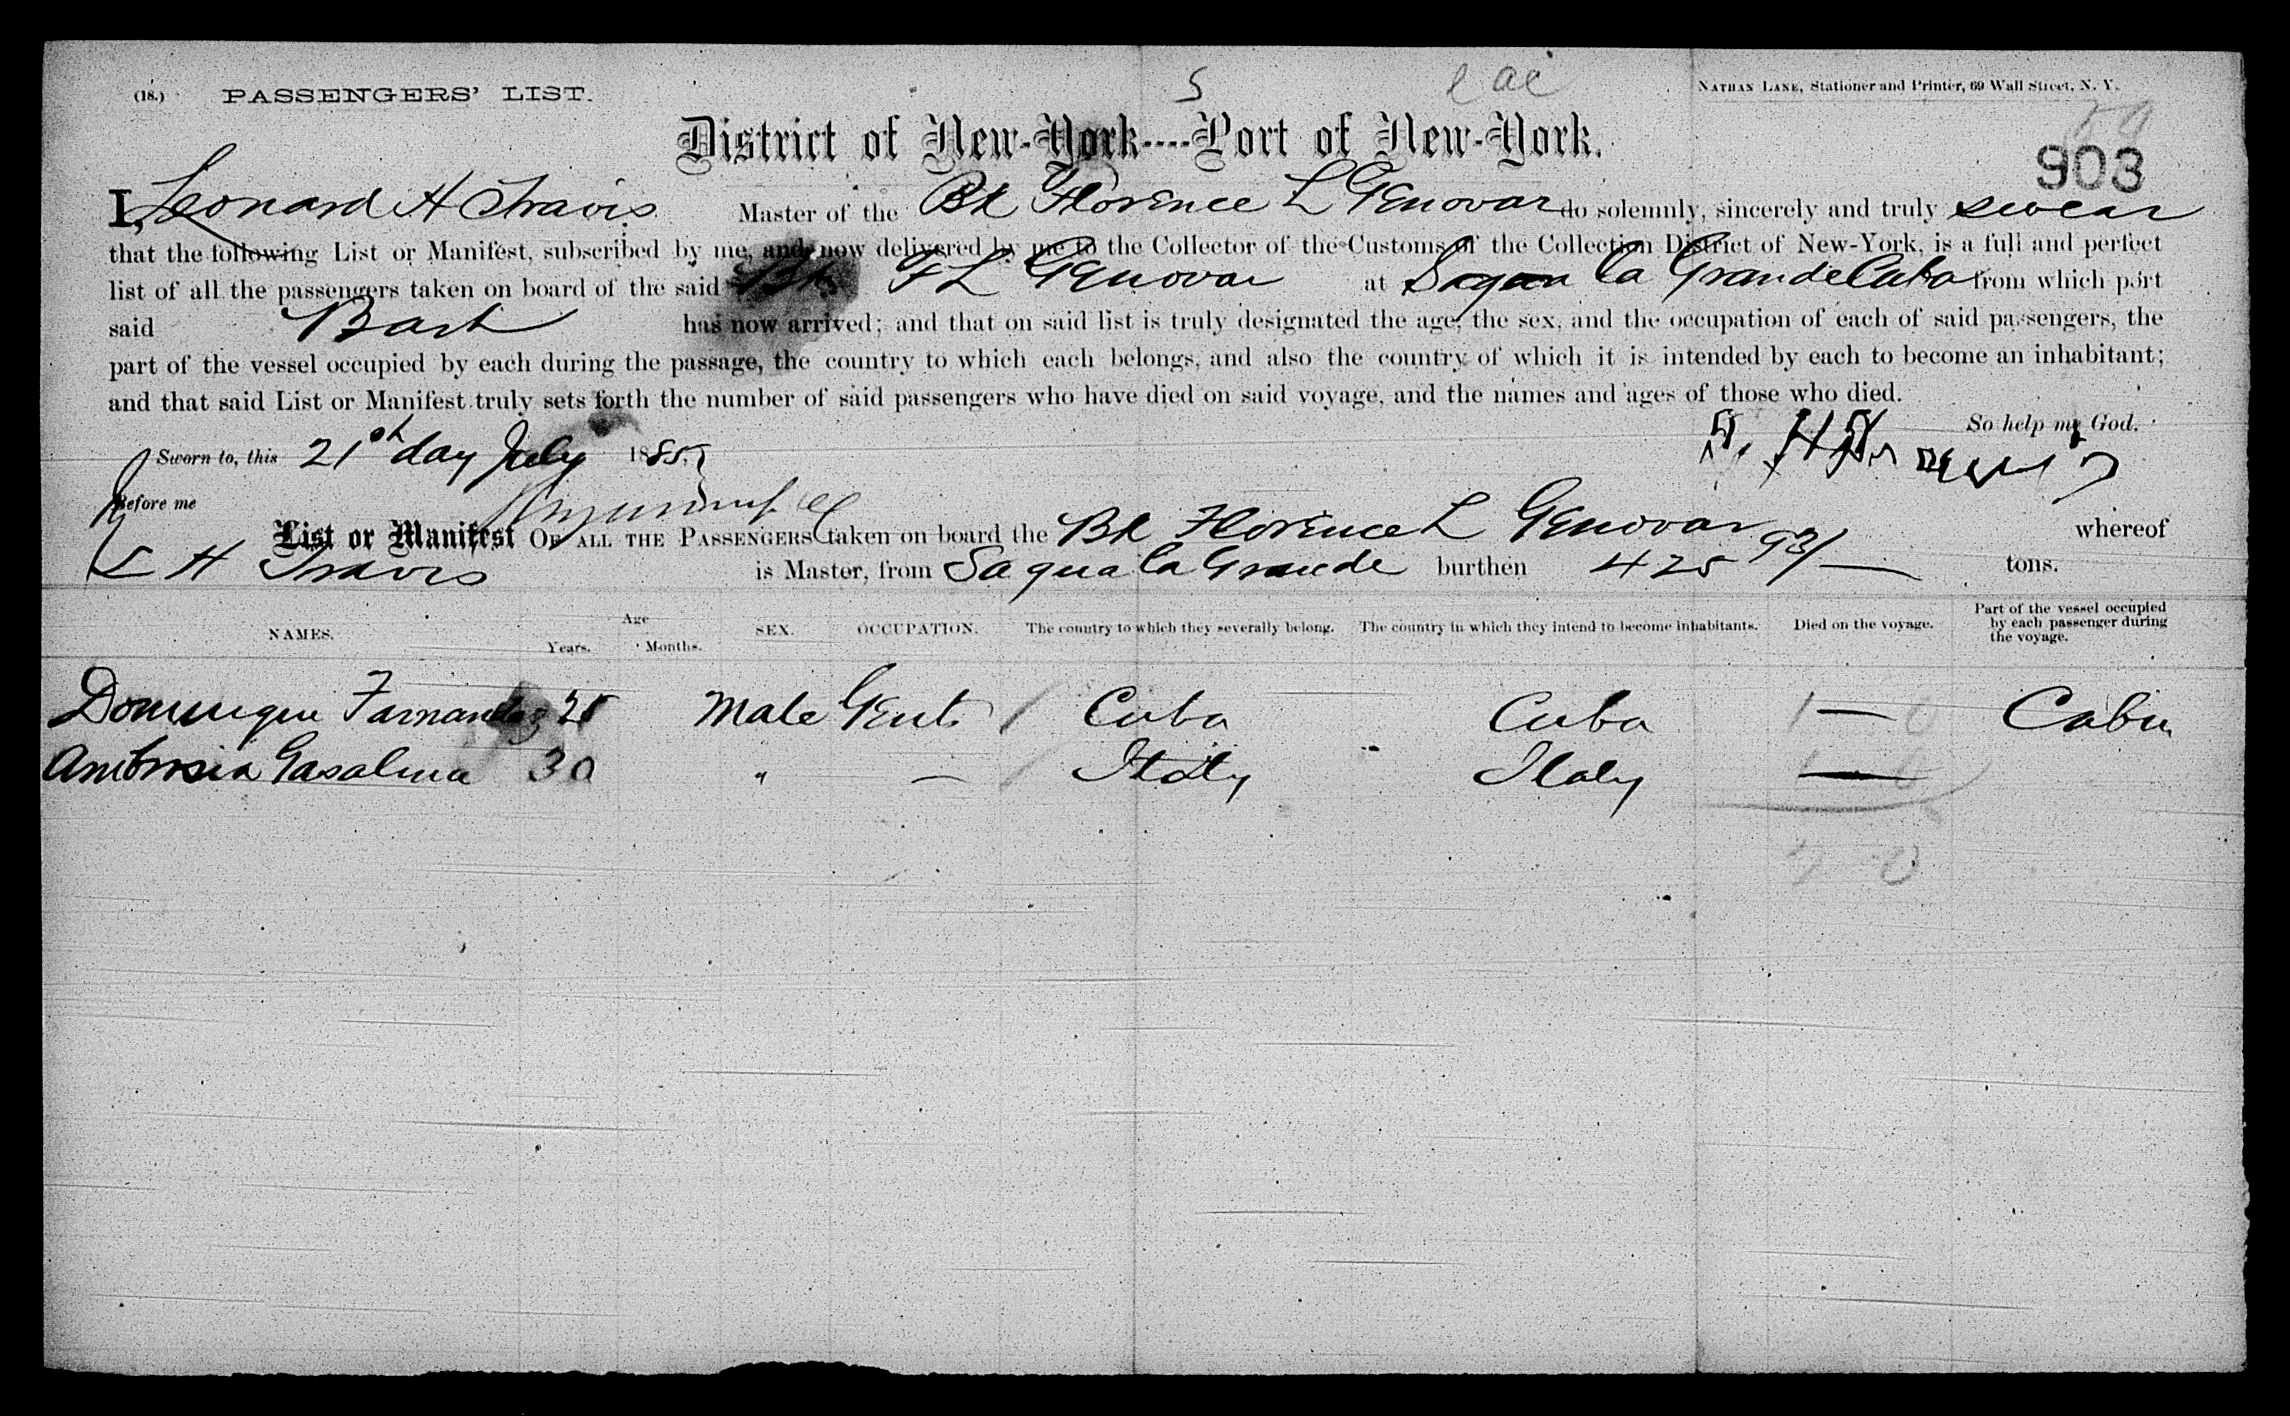 5 e ac
(18.) PASSENGERS' LIST. NATHAN LANE, Stationer and Printer, 69 Wall Street, N. Y.
District of New-York----Port of New-York.
903
I, Leonard H Travis Master of the Bk Florence L Genovar do solemnly, sincerely and truly swear
that the following List or Manifest, subscribed by me, and now delivered by me to the Collector of the Customs of the Collection District of New-York, is a full and perfect
list of all the passengers taken on board of the said Bk F L Genovar at Sagua la Grande Cuba from which port
said Bark has now arrived; and that on said list is truly designated the age, the sex, and the occupation of each of said passengers, the
part of the vessel occupied by each during the passage, the country to which each belongs, and also the country of which it is intended by each to become an inhabitant;
and that said List or Manifest truly sets forth the number of said passengers who have died on said voyage, and the names and ages of those who died.
So help me God.
Sworn to, this 21st day July 1885,
Before me
List or Manifest OF ALL THE PASSENGERS taken on board the Bk Florence L Genovar whereof
L H Travis is Master, from Sagua la Grande burthen 425 93/ tons.
NAMES. Age Years. Months. SEX. OCCUPATION. The country to which they severally belong. The country in which they intend to become inhabitants. Died on the voyage. Part of the vessel occupied by each passenger during the voyage.
Dominique Farnandez 25 Male Gent Cuba Cuba — Cabin
Ambrosia Gasalina 30 " — Italy Italy —